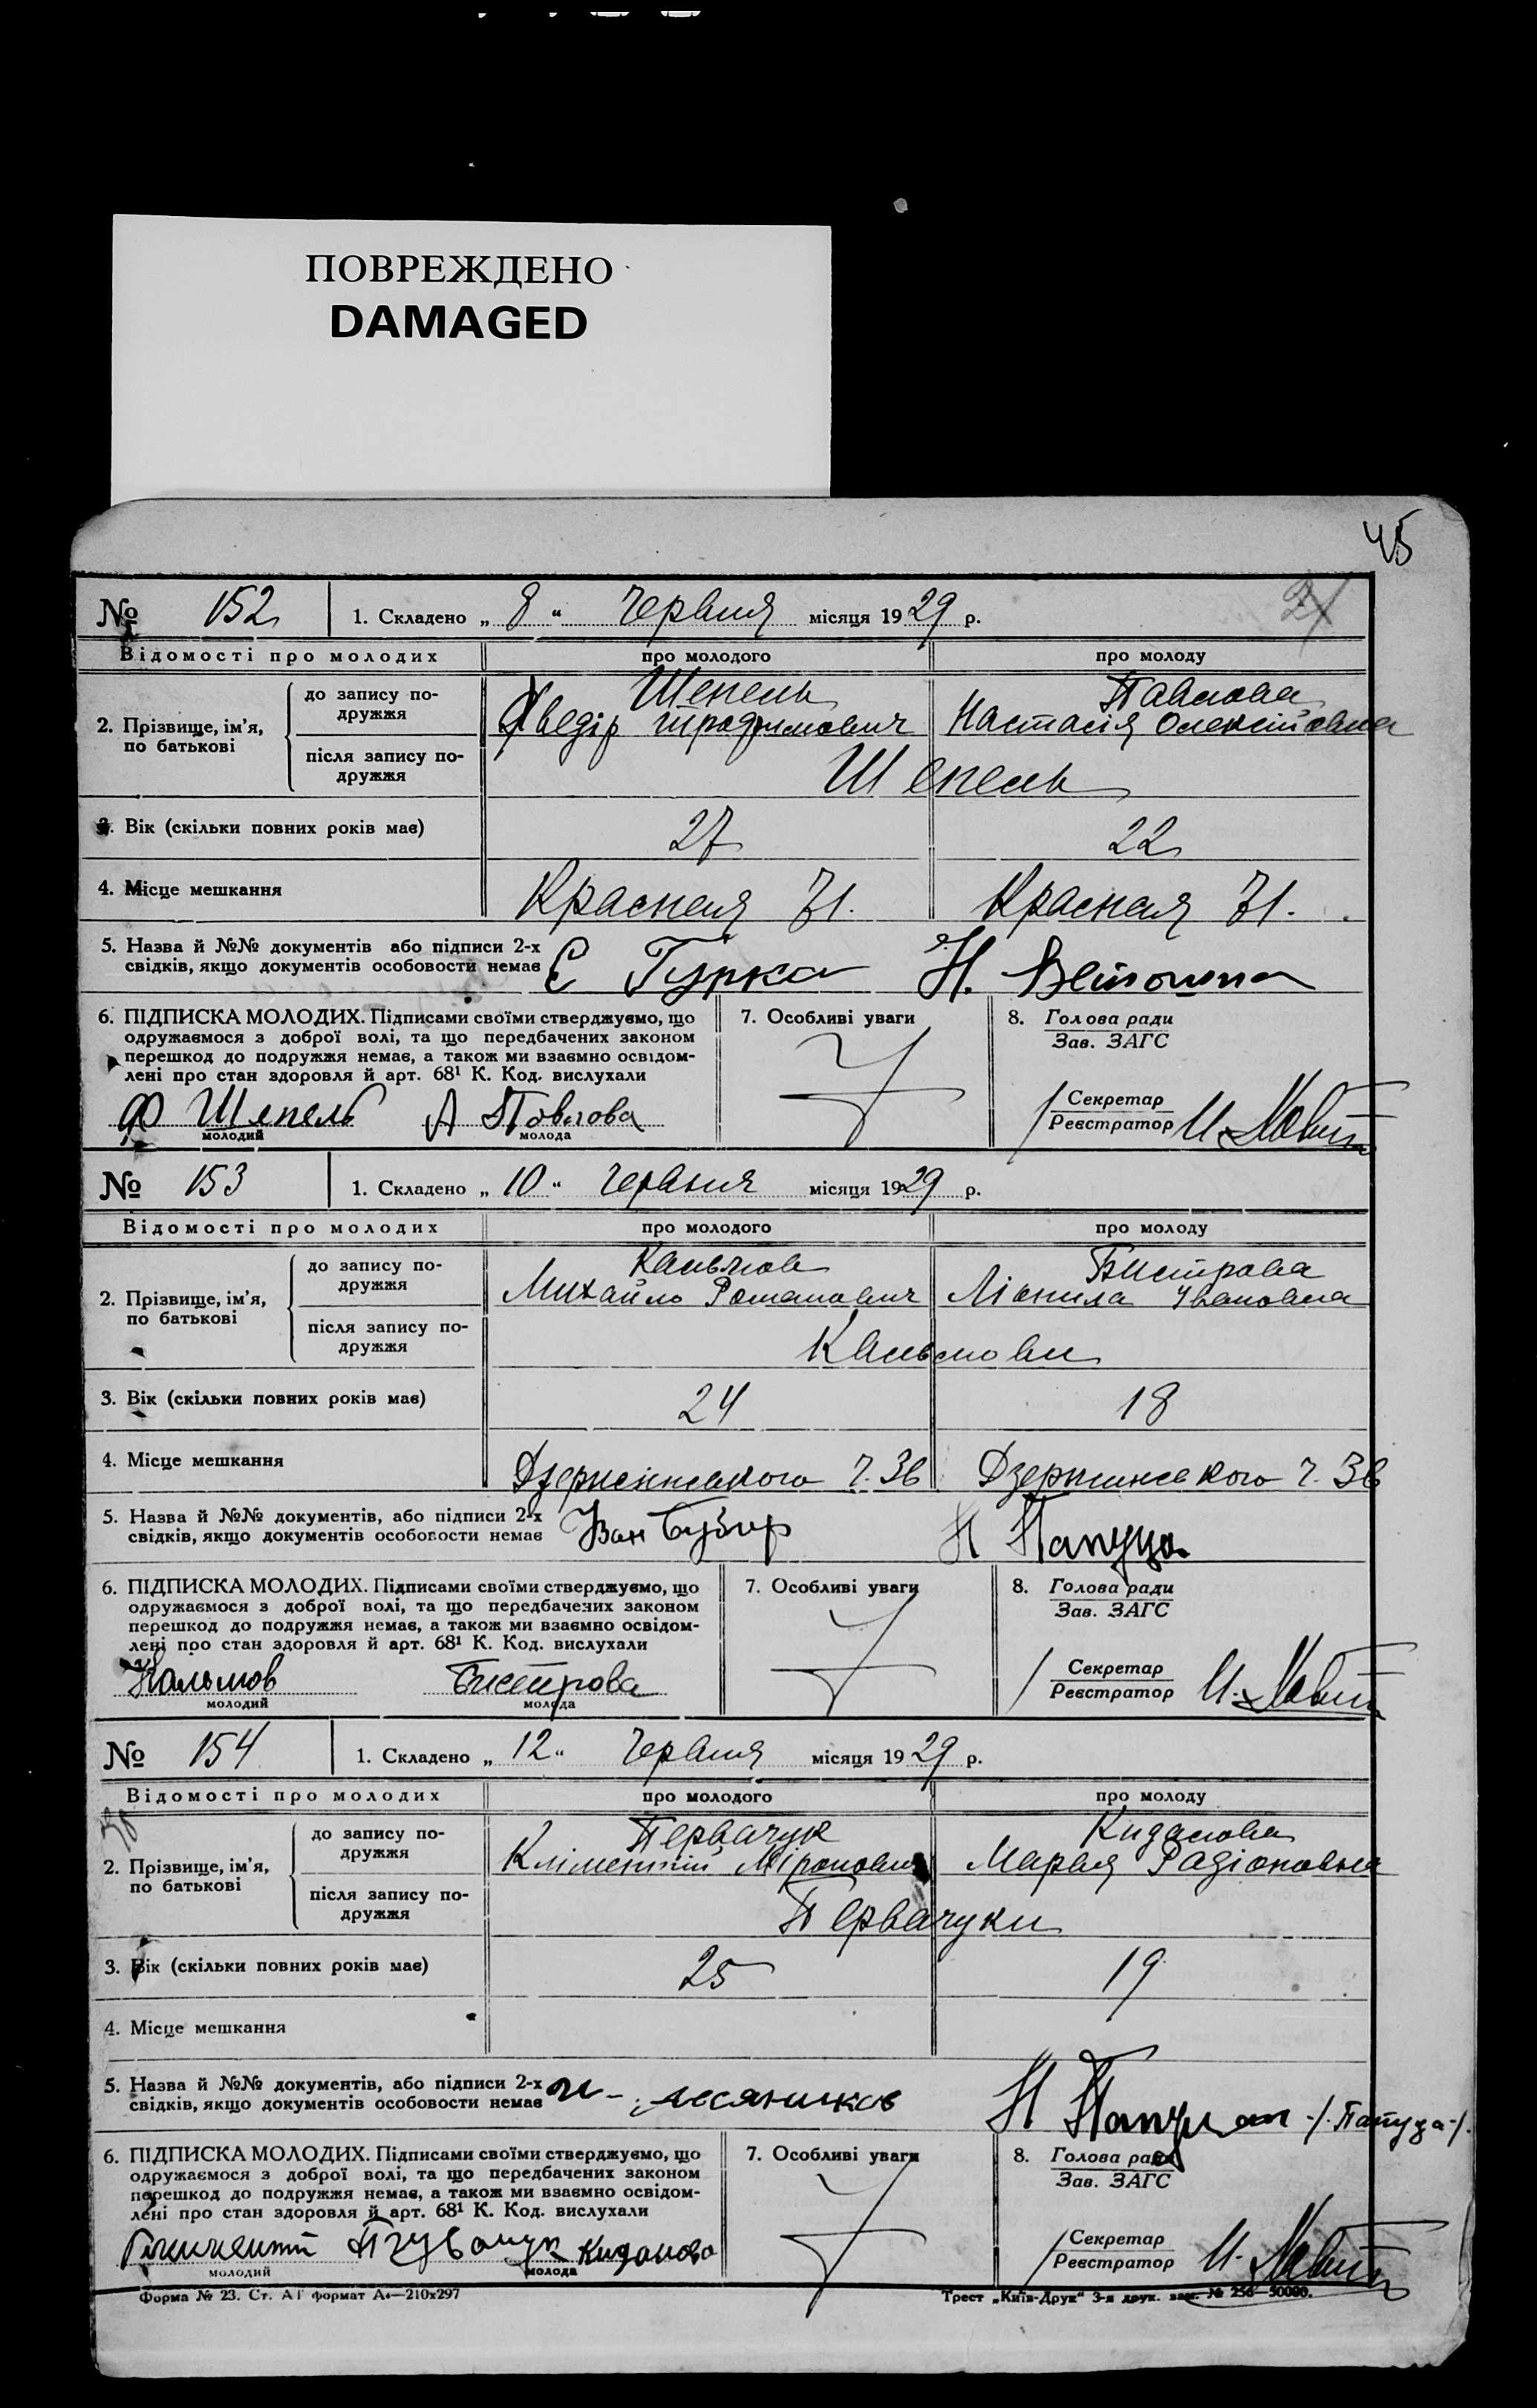 ПОВРЕЖДЕНО
DAMAGED
45
№ 152 1. Складено „ 8 “ червня місяця 1929 р.
Відомості про молодих про молодого про молоду
2. Прізвище, ім’я, по батькові
до запису подружжя
Шепель Павлова
Хведір Трафимович Настасія Олексіївна
після запису подружжя
Шепель
3. Вік (скільки повних років має) 27 22
4. Місце мешкання Красная 71. Красная 71.
5. Назва й №№ документів або підписи 2-х
свідків, якщо документів особовости немає Є Гурка Н.
6. ПІДПИСКА МОЛОДИХ. Підписами своїми стверджуємо, що
одружаємося з доброї волі, та що передбачених законом
перешкод до подружжя немає, а також ми взаємно освідом-
лені про стан здоровля й арт. 68¹ К. Код. вислухали
Ф Шепель А Повлова
молодий молода
7. Особливі уваги
8. Голова ради
Зав. ЗАГС
Секретар
Реєстратор
№ 153 1. Складено „ 10 “ червня місяця 1929 р.
Відомості про молодих про молодого про молоду
2. Прізвище, ім’я, по батькові
до запису подружжя
Кальмов Бистрова
Михайло Романович Ліонила Івановна
після запису подружжя
Кальмови
3. Вік (скільки повних років має) 24 18
4. Місце мешкання Дзержинського ч. 36 Дзержинського ч. 36
5. Назва й №№ документів, або підписи 2-х
свідків, якщо документів особовости немає Іван Бузир Н Папуца
6. ПІДПИСКА МОЛОДИХ. Підписами своїми стверджуємо, що
одружаємося з доброї волі, та що передбачених законом
перешкод до подружжя немає, а також ми взаємно освідом-
лені про стан здоровля й арт. 68¹ К. Код. вислухали
Кальмов Бистрова
молодий молода
7. Особливі уваги
8. Голова ради
Зав. ЗАГС
Секретар
Реєстратор
№ 154 1. Складено „ 12 “ червня місяця 1929 р.
Відомості про молодих про молодого про молоду
2. Прізвище, ім’я, по батькові
до запису подружжя
Первачук Кидалова
Кліментій Міронович Марья Радіоновна
після запису подружжя
Первачуки
3. Вік (скільки повних років має) 25 19
4. Місце мешкання
5. Назва й №№ документів, або підписи 2-х
свідків, якщо документів особовости немає Н Папуца -/. Папуца -/.
6. ПІДПИСКА МОЛОДИХ. Підписами своїми стверджуємо, що
одружаємося з доброї волі, та що передбачених законом
перешкод до подружжя немає, а також ми взаємно освідом-
лені про стан здоровля й арт. 68¹ К. Код. вислухали
Кидалова
молодий молода
7. Особливі уваги
8. Голова ради
Зав. ЗАГС
Секретар
Реєстратор
Форма № 23. Ст. АГ формат А4—210х297
Трест „Київ-Друк“ 3-я друк. зам. № 256—50000.